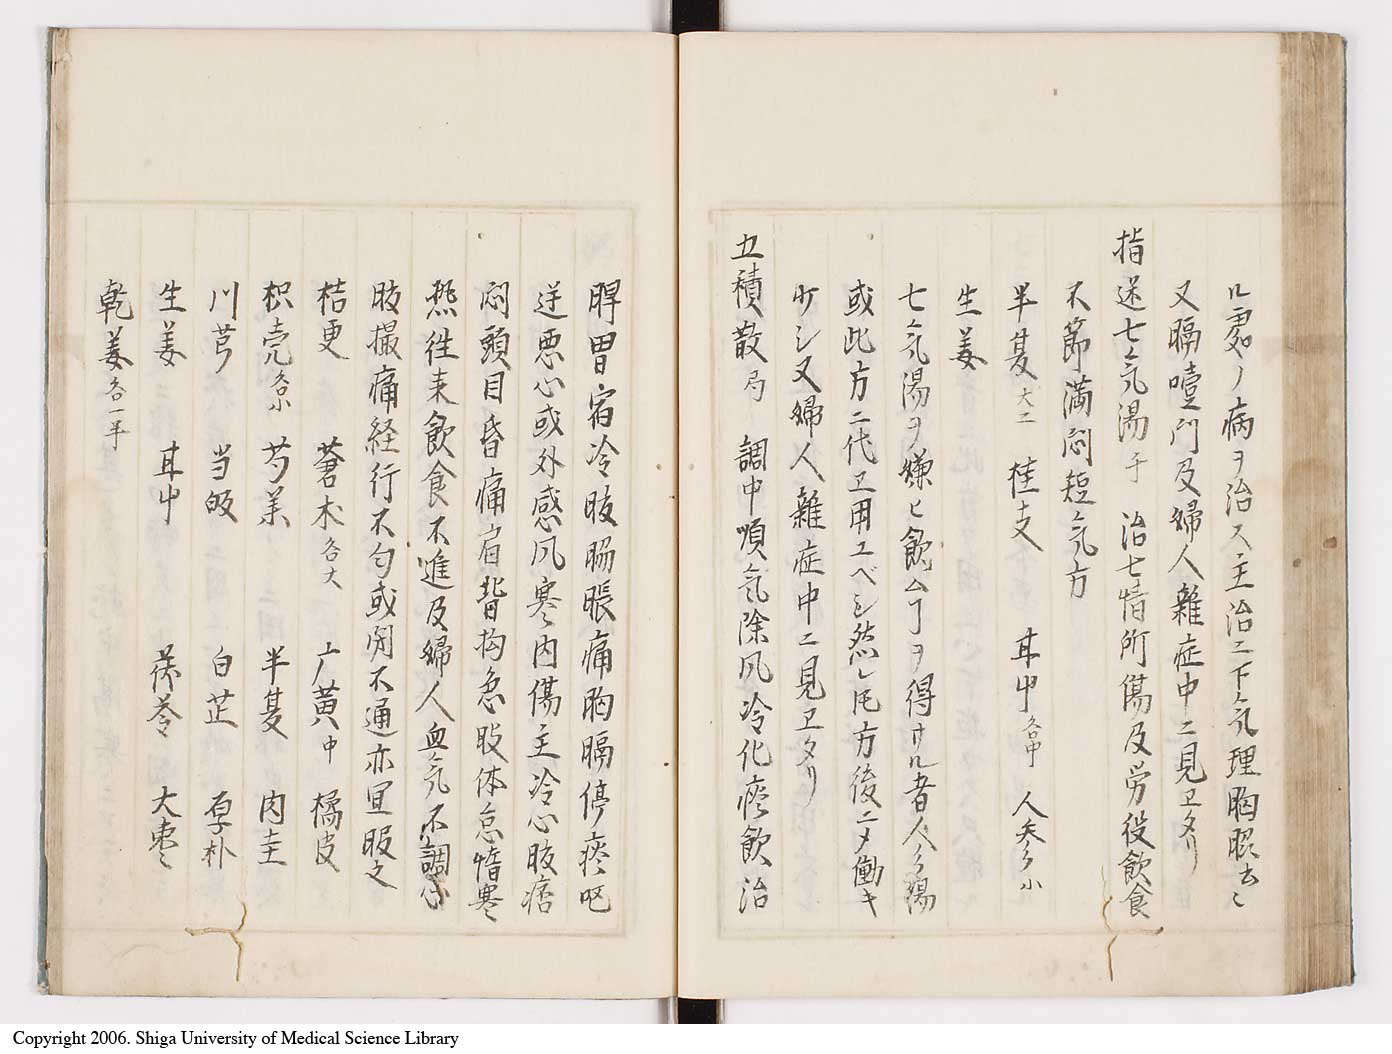 ル處ノ病ヲ治ス主治ニ下気理胸腹云々
又膈噎門及婦人雜症中ニ見ヱタリ
指迷七気湯千　治七情所傷及労役飲食
不節満悶短気方
半夏大二　桂支　耳中各中　人参多小
生姜
七気湯ヲ嫌ヒ飲ムヿヲ得サル者人多湯
或此方ニ代ヱ用ユベシ然レ𪜈方後ニメ働キ
少シ又婦人雜症中ニ見ヱタリ
五積散局　調中順気除風冷化痰飲治
脾胃宿冷腹脇脹痛胸膈停痰嘔
逆悪心或外感风寒内傷主冷心腹痞
悶頭目昏痛肩背拘急肢体怠惰寒
熱往来飲食不進及婦人血気不調心
腹撮痛経行不匀或閉不通亦宜服之
桔更　蒼朮各大　广黄中　橘皮
枳壳各小　芍薬　半夏　肉圭
川芎　当皈　白芷　厚朴
生姜　耳中　茯苓　大棗
乾姜各一半
Copyright 2006. Shiga University of Medical Science Library